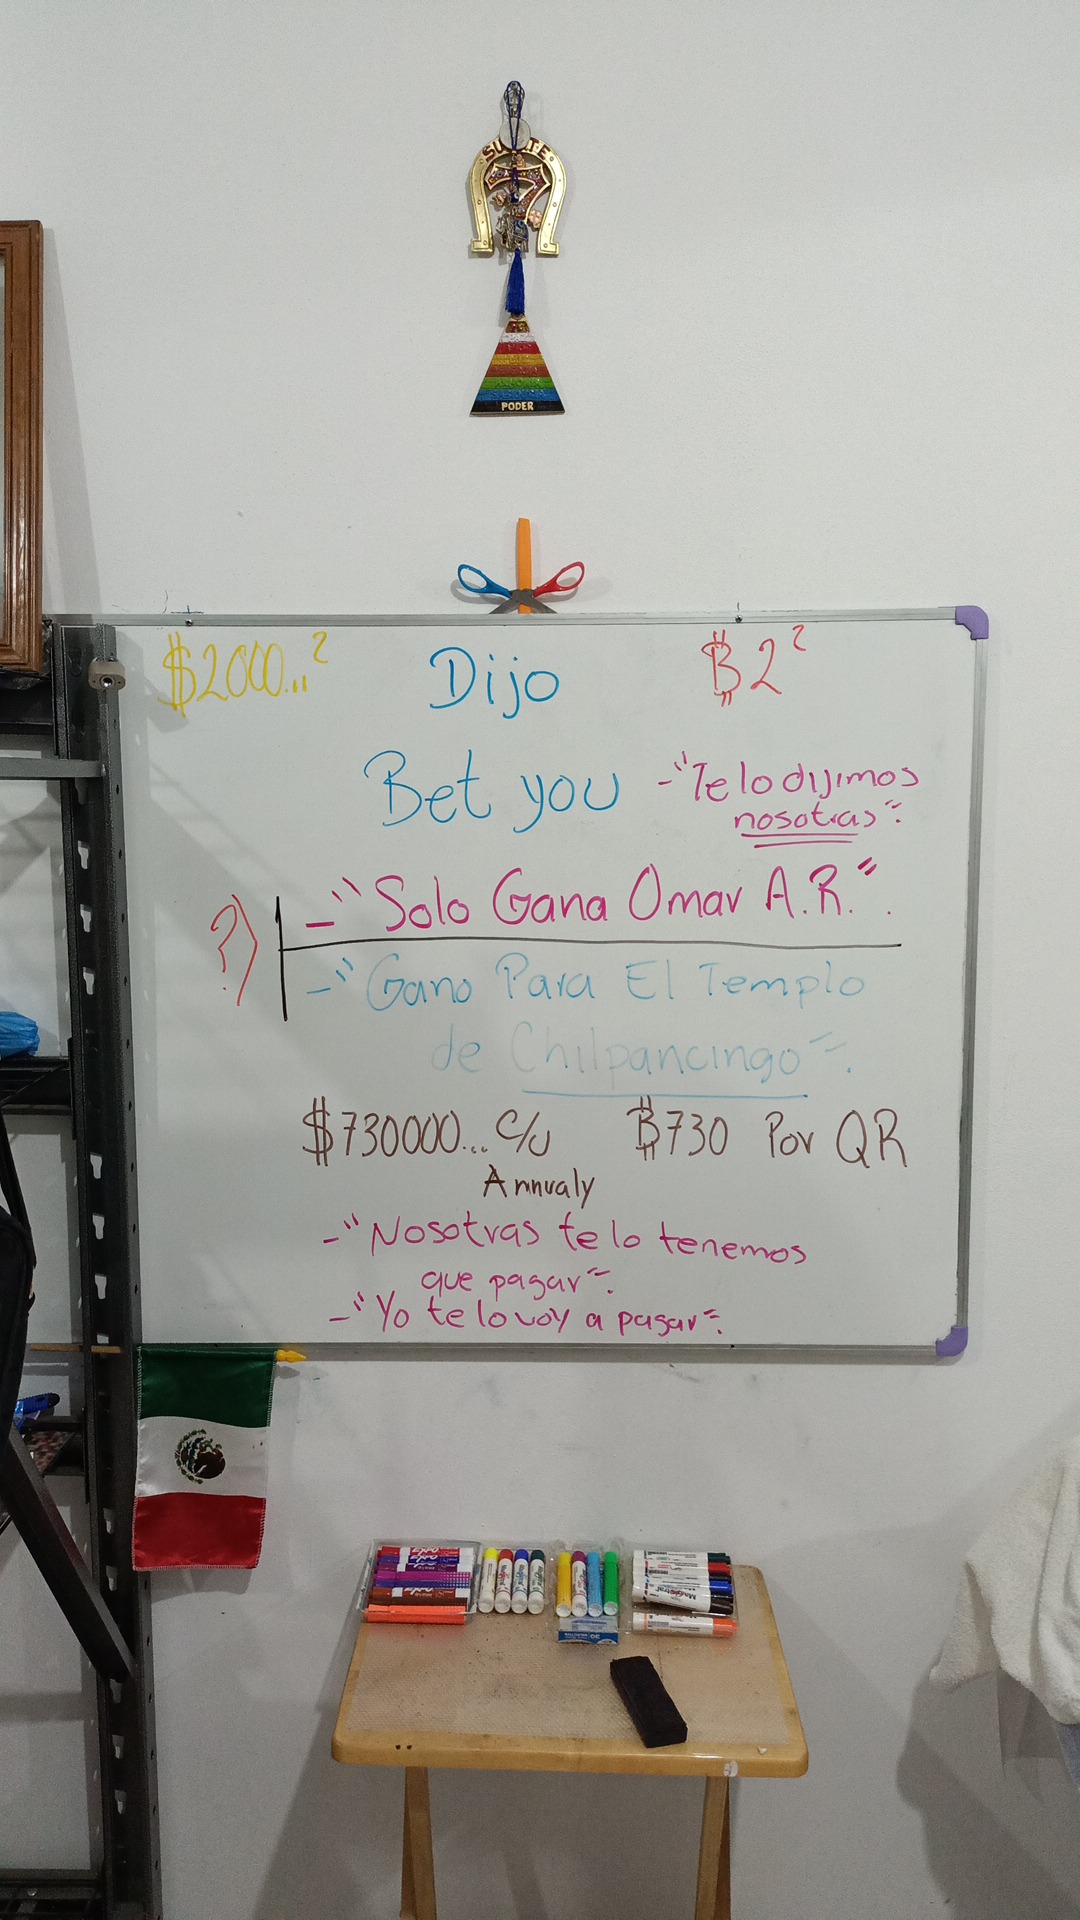 SUERTE
7
PODER
$2000...²
Dijo
₿2²
Bet you
-"Te lo dijimos
nosotras".
?)
-"Solo Gana Omar A.R.".
-"Gano Para El Templo
de Chilpancingo".
$730000... c/u
₿730 Por QR
Annualy
-"Nosotras te lo tenemos
que pagar".
-"Yo te lo voy a pagar".
Magistral